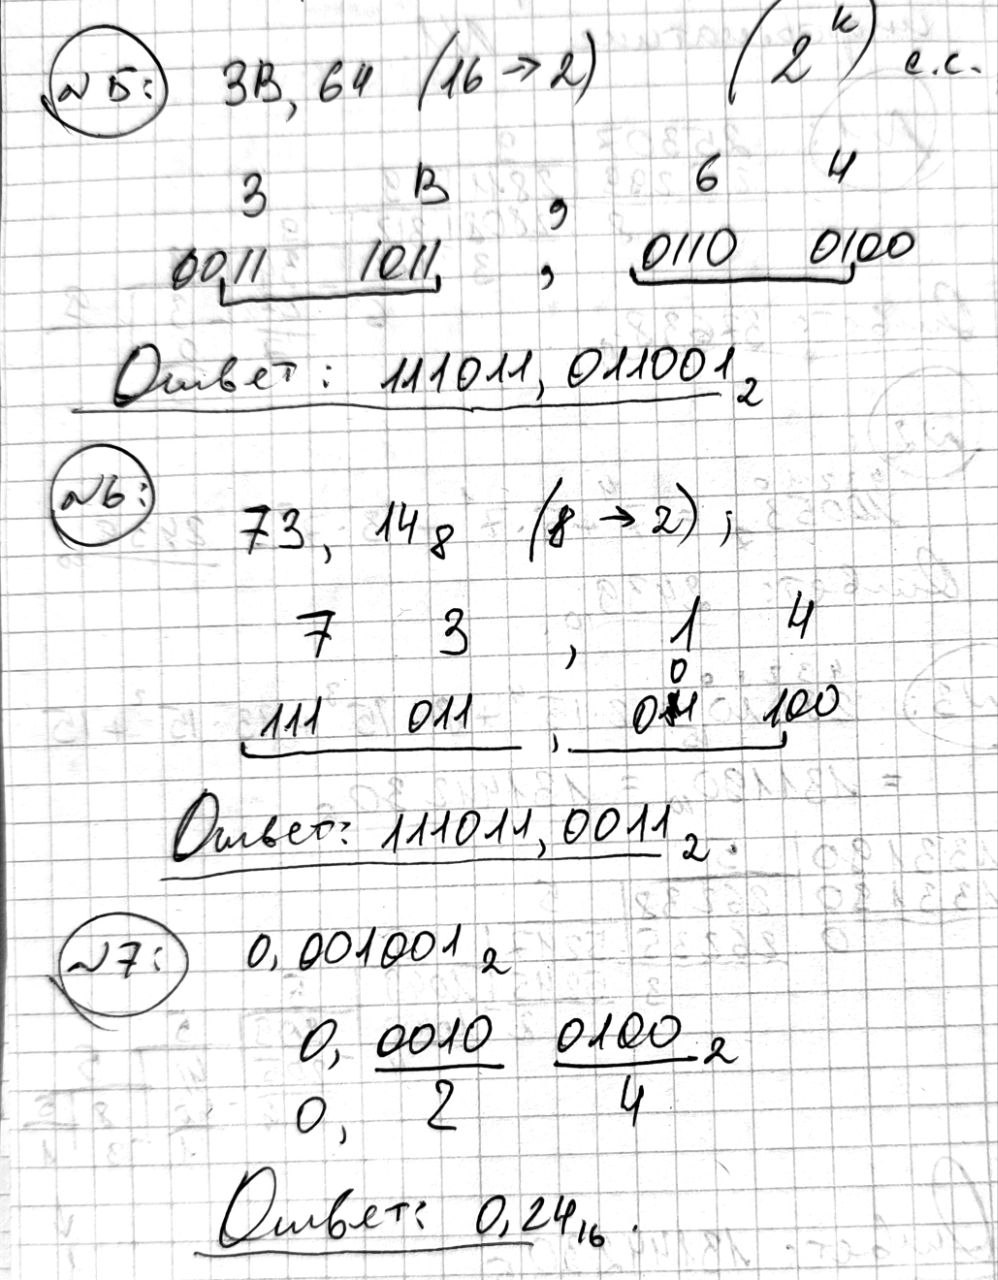 №5: 3B, 64 (16 → 2) (2^k) с.с.
3 B , 6 4
0011 1011 , 0110 0100
Ответ: 111011, 011001₂
№6:
73, 14₈ (8 → 2);
7 3 , 1 4
0
111 011 , 011 100
Ответ: 111011, 0011₂.
№7: 0, 001001₂
0, 0010 0100₂
0, 2 4
Ответ: 0, 24₁₆.